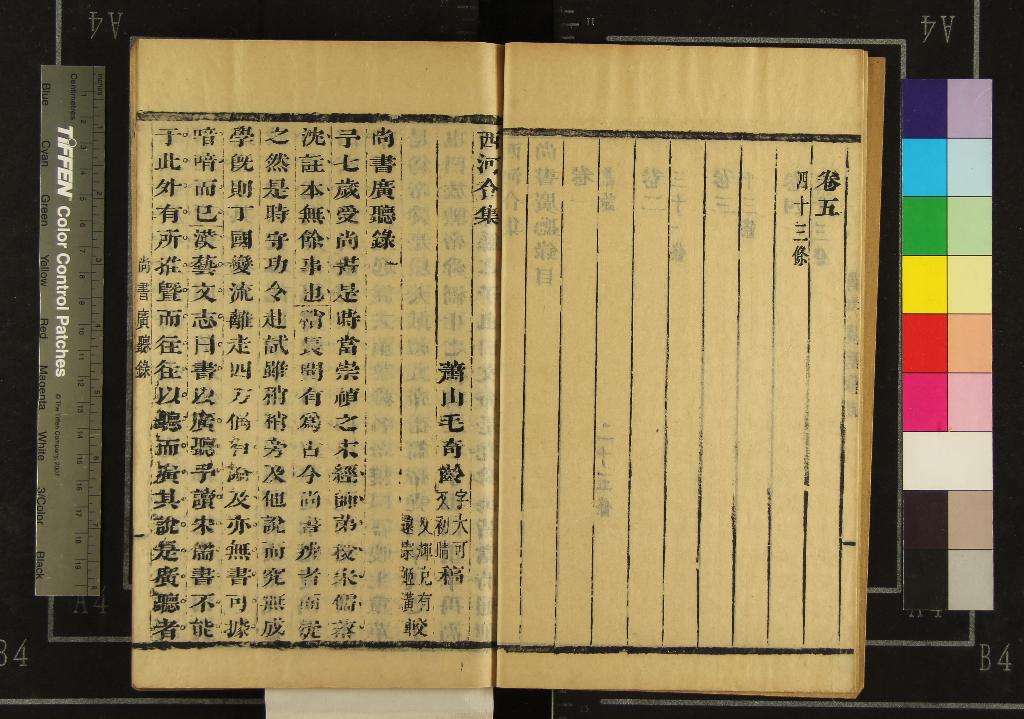 卷五
四十三條
西河合集
蕭山毛奇齡字大可 又初晴稿
尚書廣聽錄一
予七歲愛尚書是時當崇禎之末經師弟授宋儒蔡
沈註本無餘事也稍長聞有為古今尚書者而
之然是時守功令赴試雖稍稍旁及他說而究無成
學既則丁國變流離走四方偶有論及亦無書可據
喑喑而已漢藝文志曰書以廣聽予讀宋儒書不能
于此外有所推暨而往往以聽而廣其說是廣聽者
尚書廣聽錄
TIFFEN Color Control Patches
© The Tiffen Company, 2007
Centimetres
Inches
Blue
Cyan
Green
Yellow
Red
Magenta
White
3/Color
Black
A4
A4
A4
A4
B4
B4